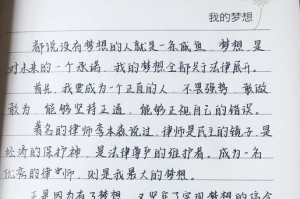 我的梦想
都说没有梦想的人就是一条咸鱼,梦想,是
对未来的一个承诺,我的梦想全都关于法律展开。
首先,我要成为一个正直的人,不畏强势,敢做
敢为,能够坚持正道,能够正视自己的错误。
著名的律师李本森说过,律师是民主的镜子,是
经济的保护神,是法律尊严的维护者。成为一名
优秀的律师,则是我最大的梦想。
正是因为有了梦想,又坚定了实现梦想的信念